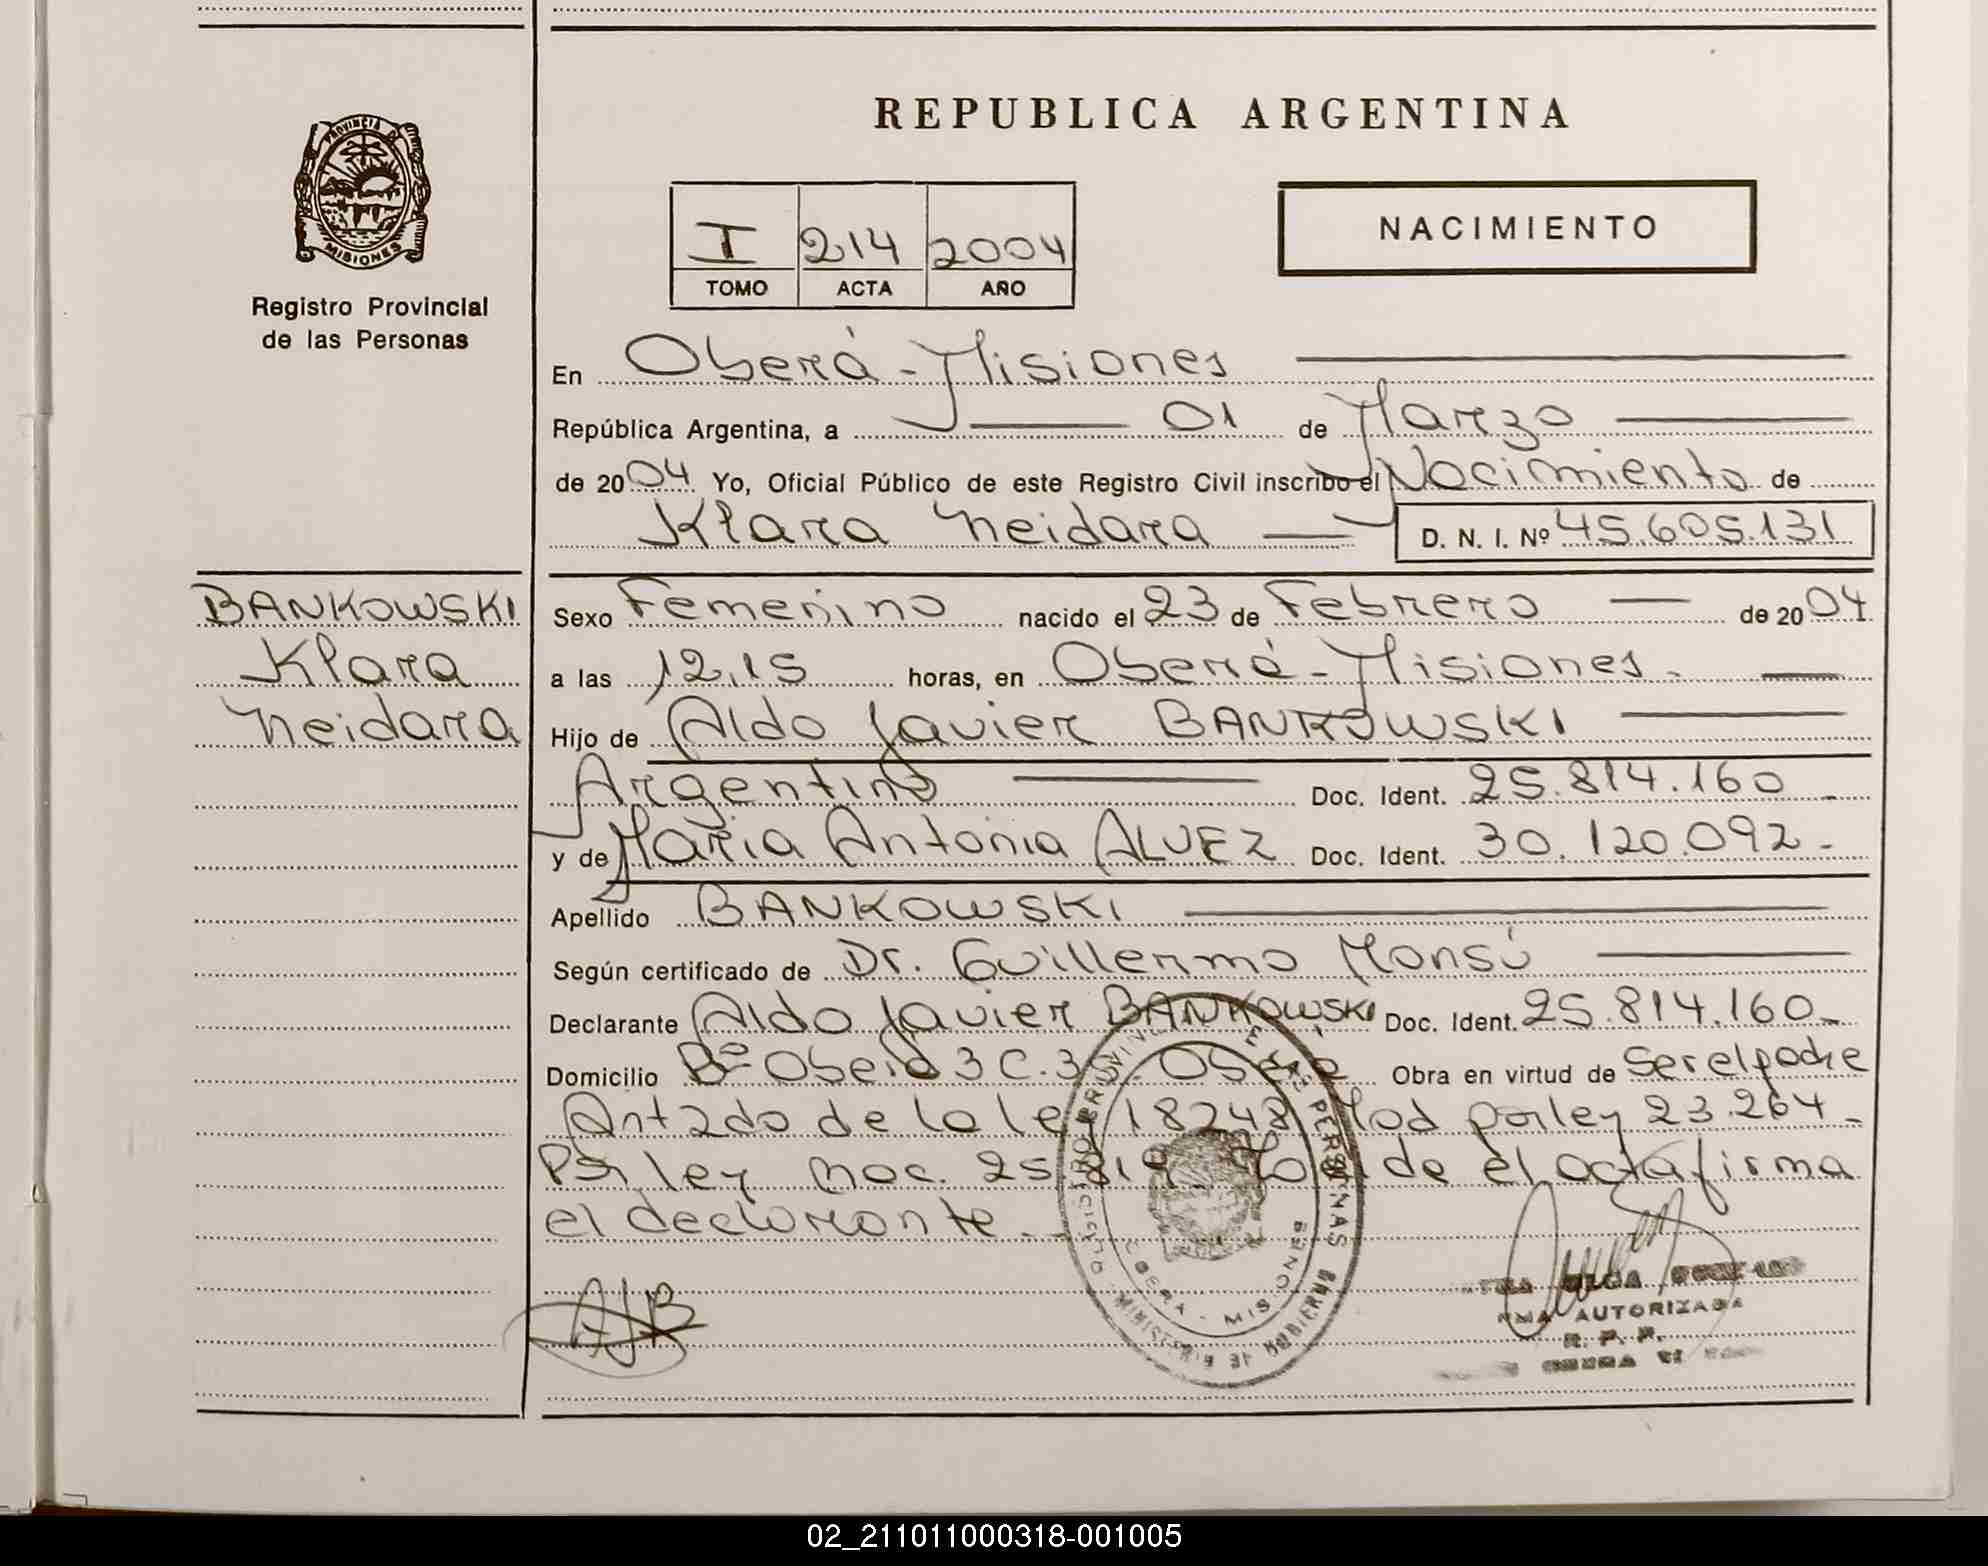 REPUBLICA ARGENTINA
PROVINCIA DE
MISIONES
Registro Provincial
de las Personas
I 214 2004
TOMO ACTA AÑO
NACIMIENTO
En Oberá - Misiones
República Argentina, a 01 de Marzo
de 2004 Yo, Oficial Público de este Registro Civil inscribo el Nacimiento de
Klara Neidara D. N. I. Nº 45.605.131
BANKOWSKI
Klara
Neidara
Sexo Femenino nacido el 23 de Febrero de 2004
a las 12,15 horas, en Oberá - Misiones.
Hijo de Aldo Javier BANKOWSKI
Argentino Doc. Ident. 25.814.160
y de Maria Antonia ALVEZ Doc. Ident. 30.120.092.-
Apellido BANKOWSKI
Según certificado de Dr. Guillermo Monsú
Declarante Aldo Javier BANKOWSKI Doc. Ident. 25.814.160-
Domicilio Bº Obeid 3 C. Oberá Obra en virtud de Ser el padre
de la ley 18248 Mod por ley 23.264-
Por ley de el acta firma
el declarante
AJB
PERSONAS
OBERA - MISIONES
AUTORIZADA
R. P. P.
02_211011000318-001005